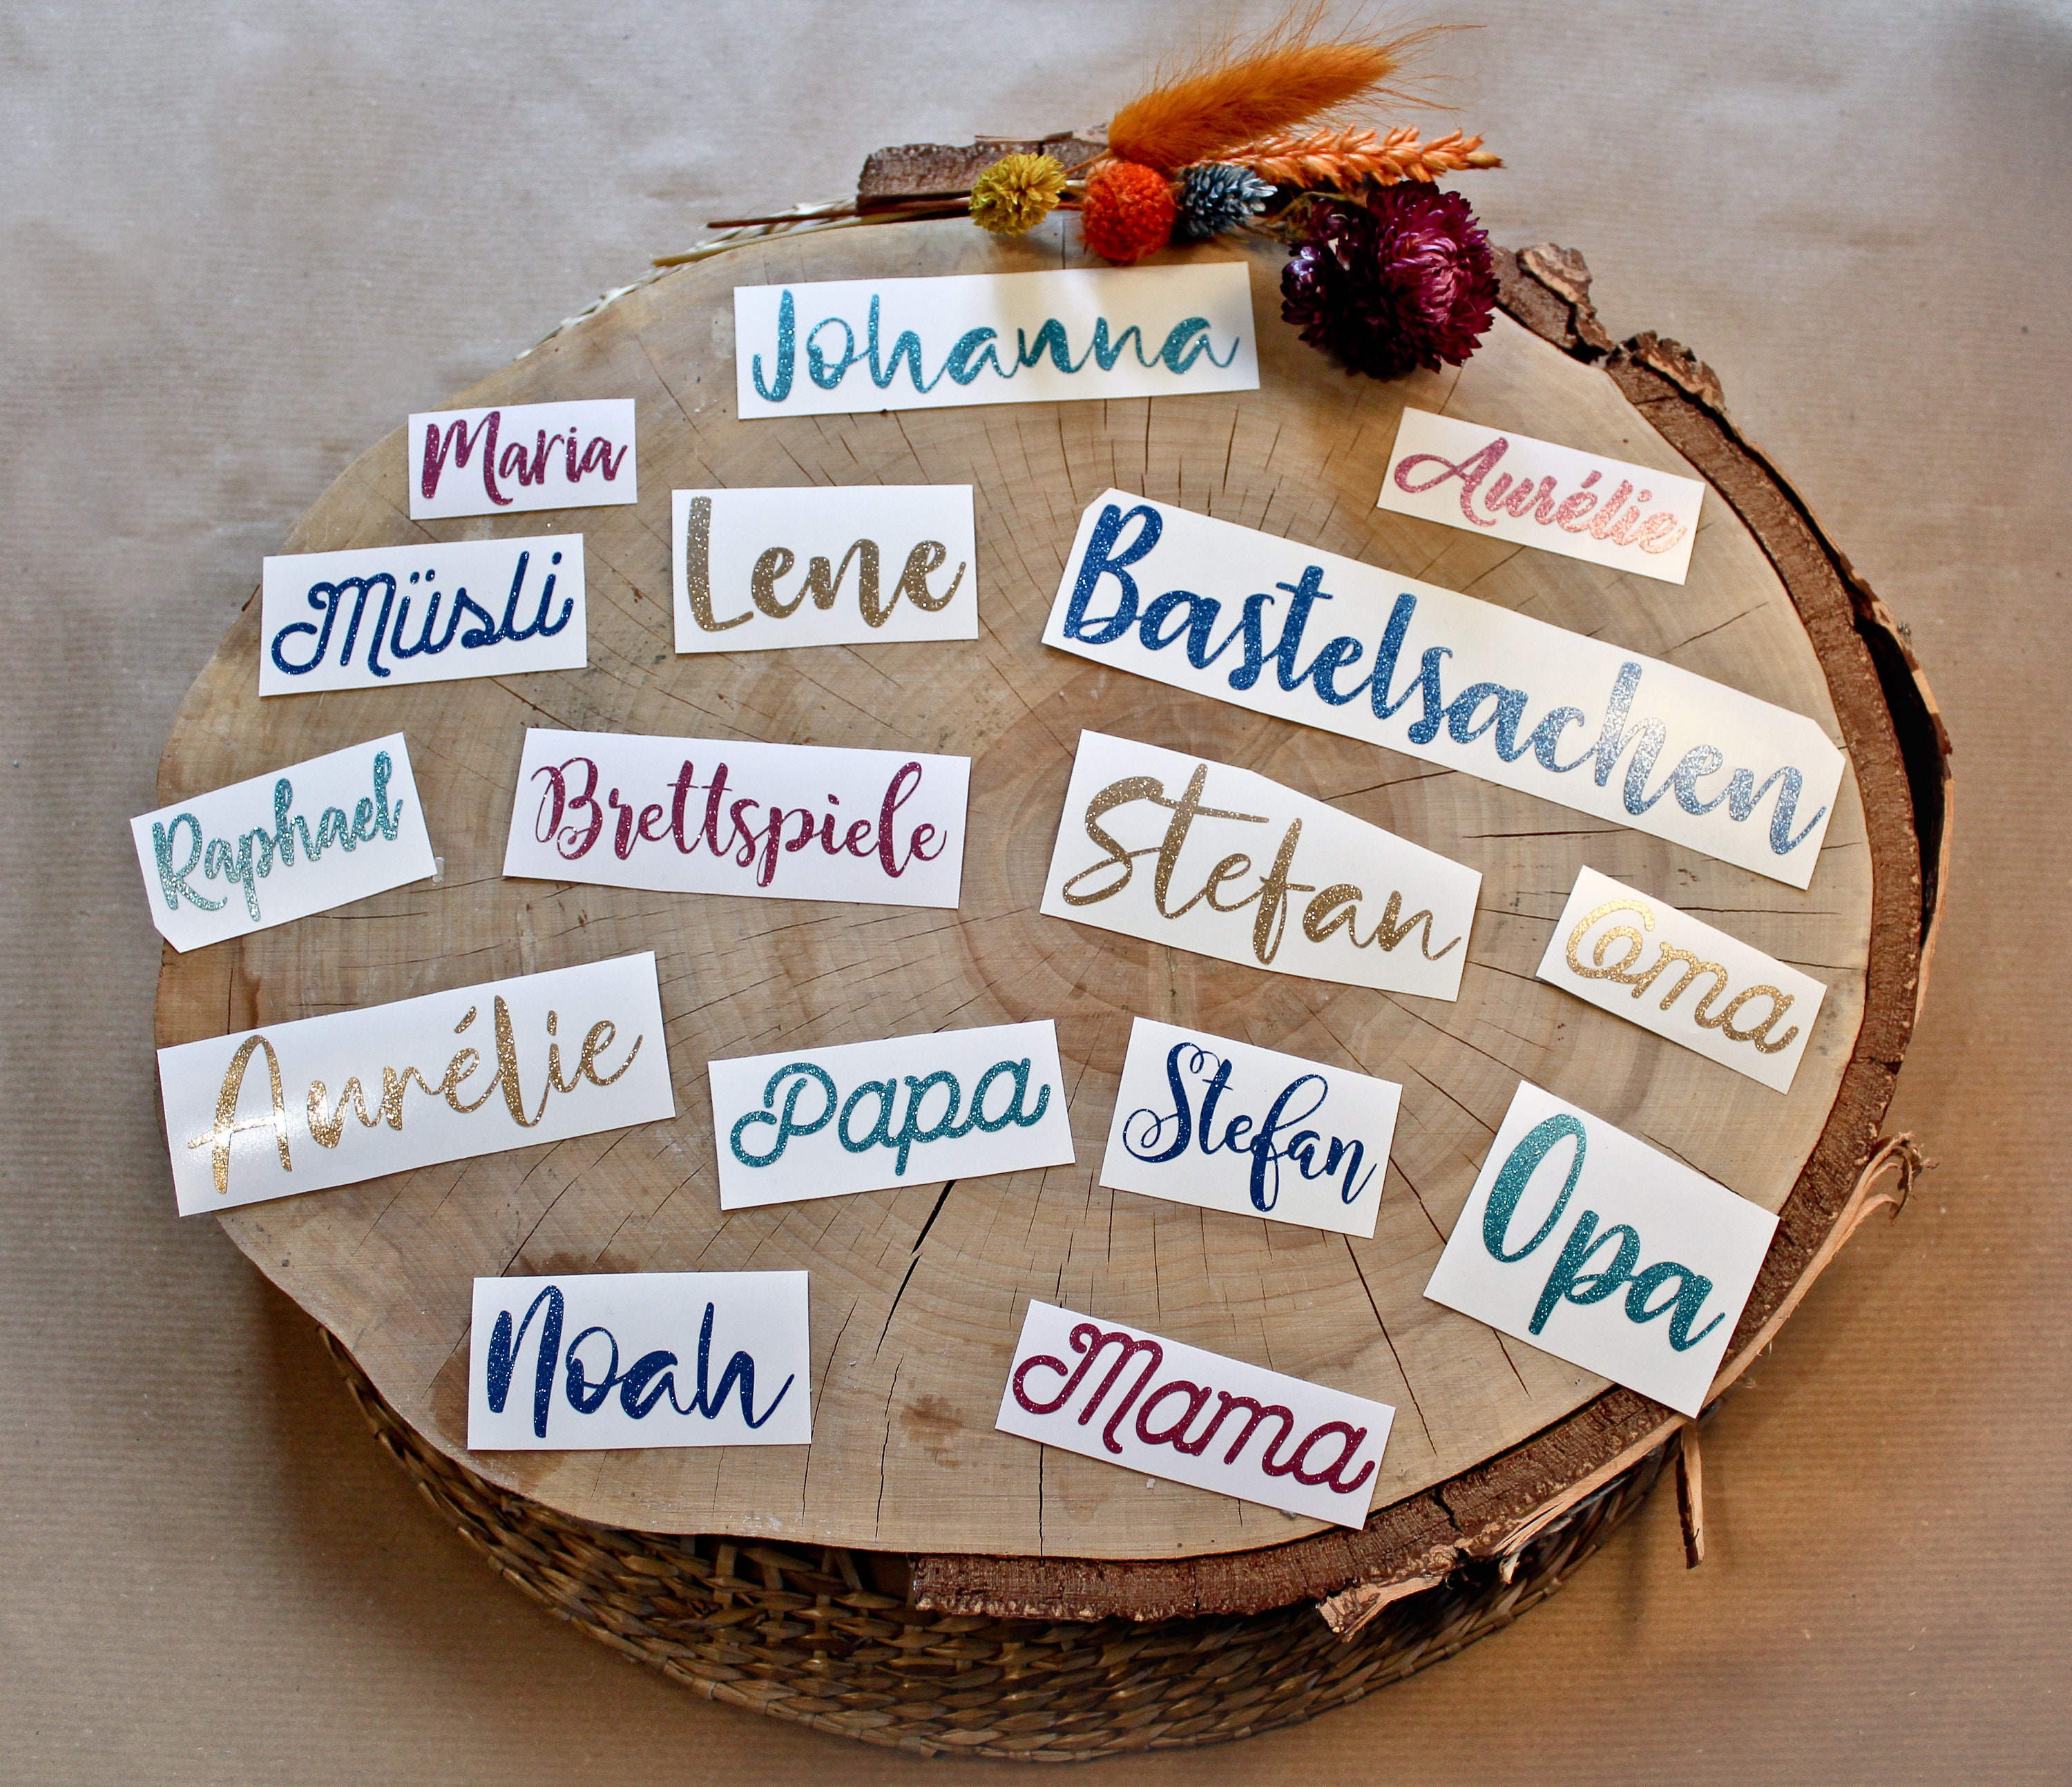 Johanna
Maria
Aurélie
Lene
Bastelsachen
Müsli
Raphael
Brettspiele
Stefan
Oma
Aurélie
Papa
Stefan
Opa
Noah
Mama